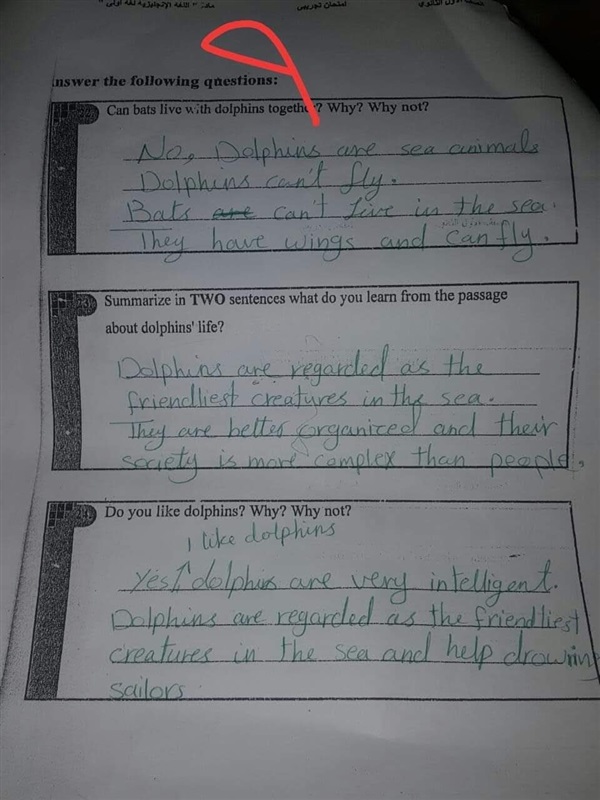 الصف الأول الثانوي امتحان تجريبي مادة " اللغة الإنجليزية لغة أولى "
9
nswer the following questions:
Can bats live with dolphins together? Why? Why not?
No, Dolphins are sea animals
Dolphins can't fly.
Bats are can't live in the sea.
They have wings and can fly.
23 Summarize in TWO sentences what do you learn from the passage
about dolphins' life?
Dolphins are regarded as the
friendliest creatures in the sea.
They are better organized and their
society is more complex than people.
24 Do you like dolphins? Why? Why not?
I like dolphins
Yes↑dolphins are very intelligent.
Dolphins are regarded as the friendliest
creatures in the sea and help drowing
sailors